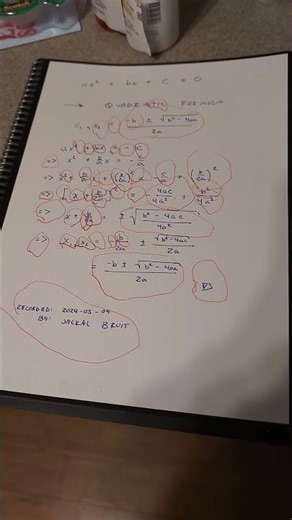 ax² + bx + c = 0
→ QUADRATIC FORMULA
x₁, x₂ = (-b ± √(b² - 4ac)) / 2a
ax² + bx = -c
=> x² + (b/a)x = -c/a
=> x² + (b/a)x + (b/2a)² = -c/a + (b/2a)²
=> [x + b/2a]² = -4ac/4a² + b²/4a²
=> x + b/2a = ± √((b² - 4ac)/4a²)
=> x₁, x₂ = -b/2a ± √(b² - 4ac)/2a
= (-b ± √(b² - 4ac)) / 2a
RECORDED: 2024-03-09
BY: JACKAL BRUIT